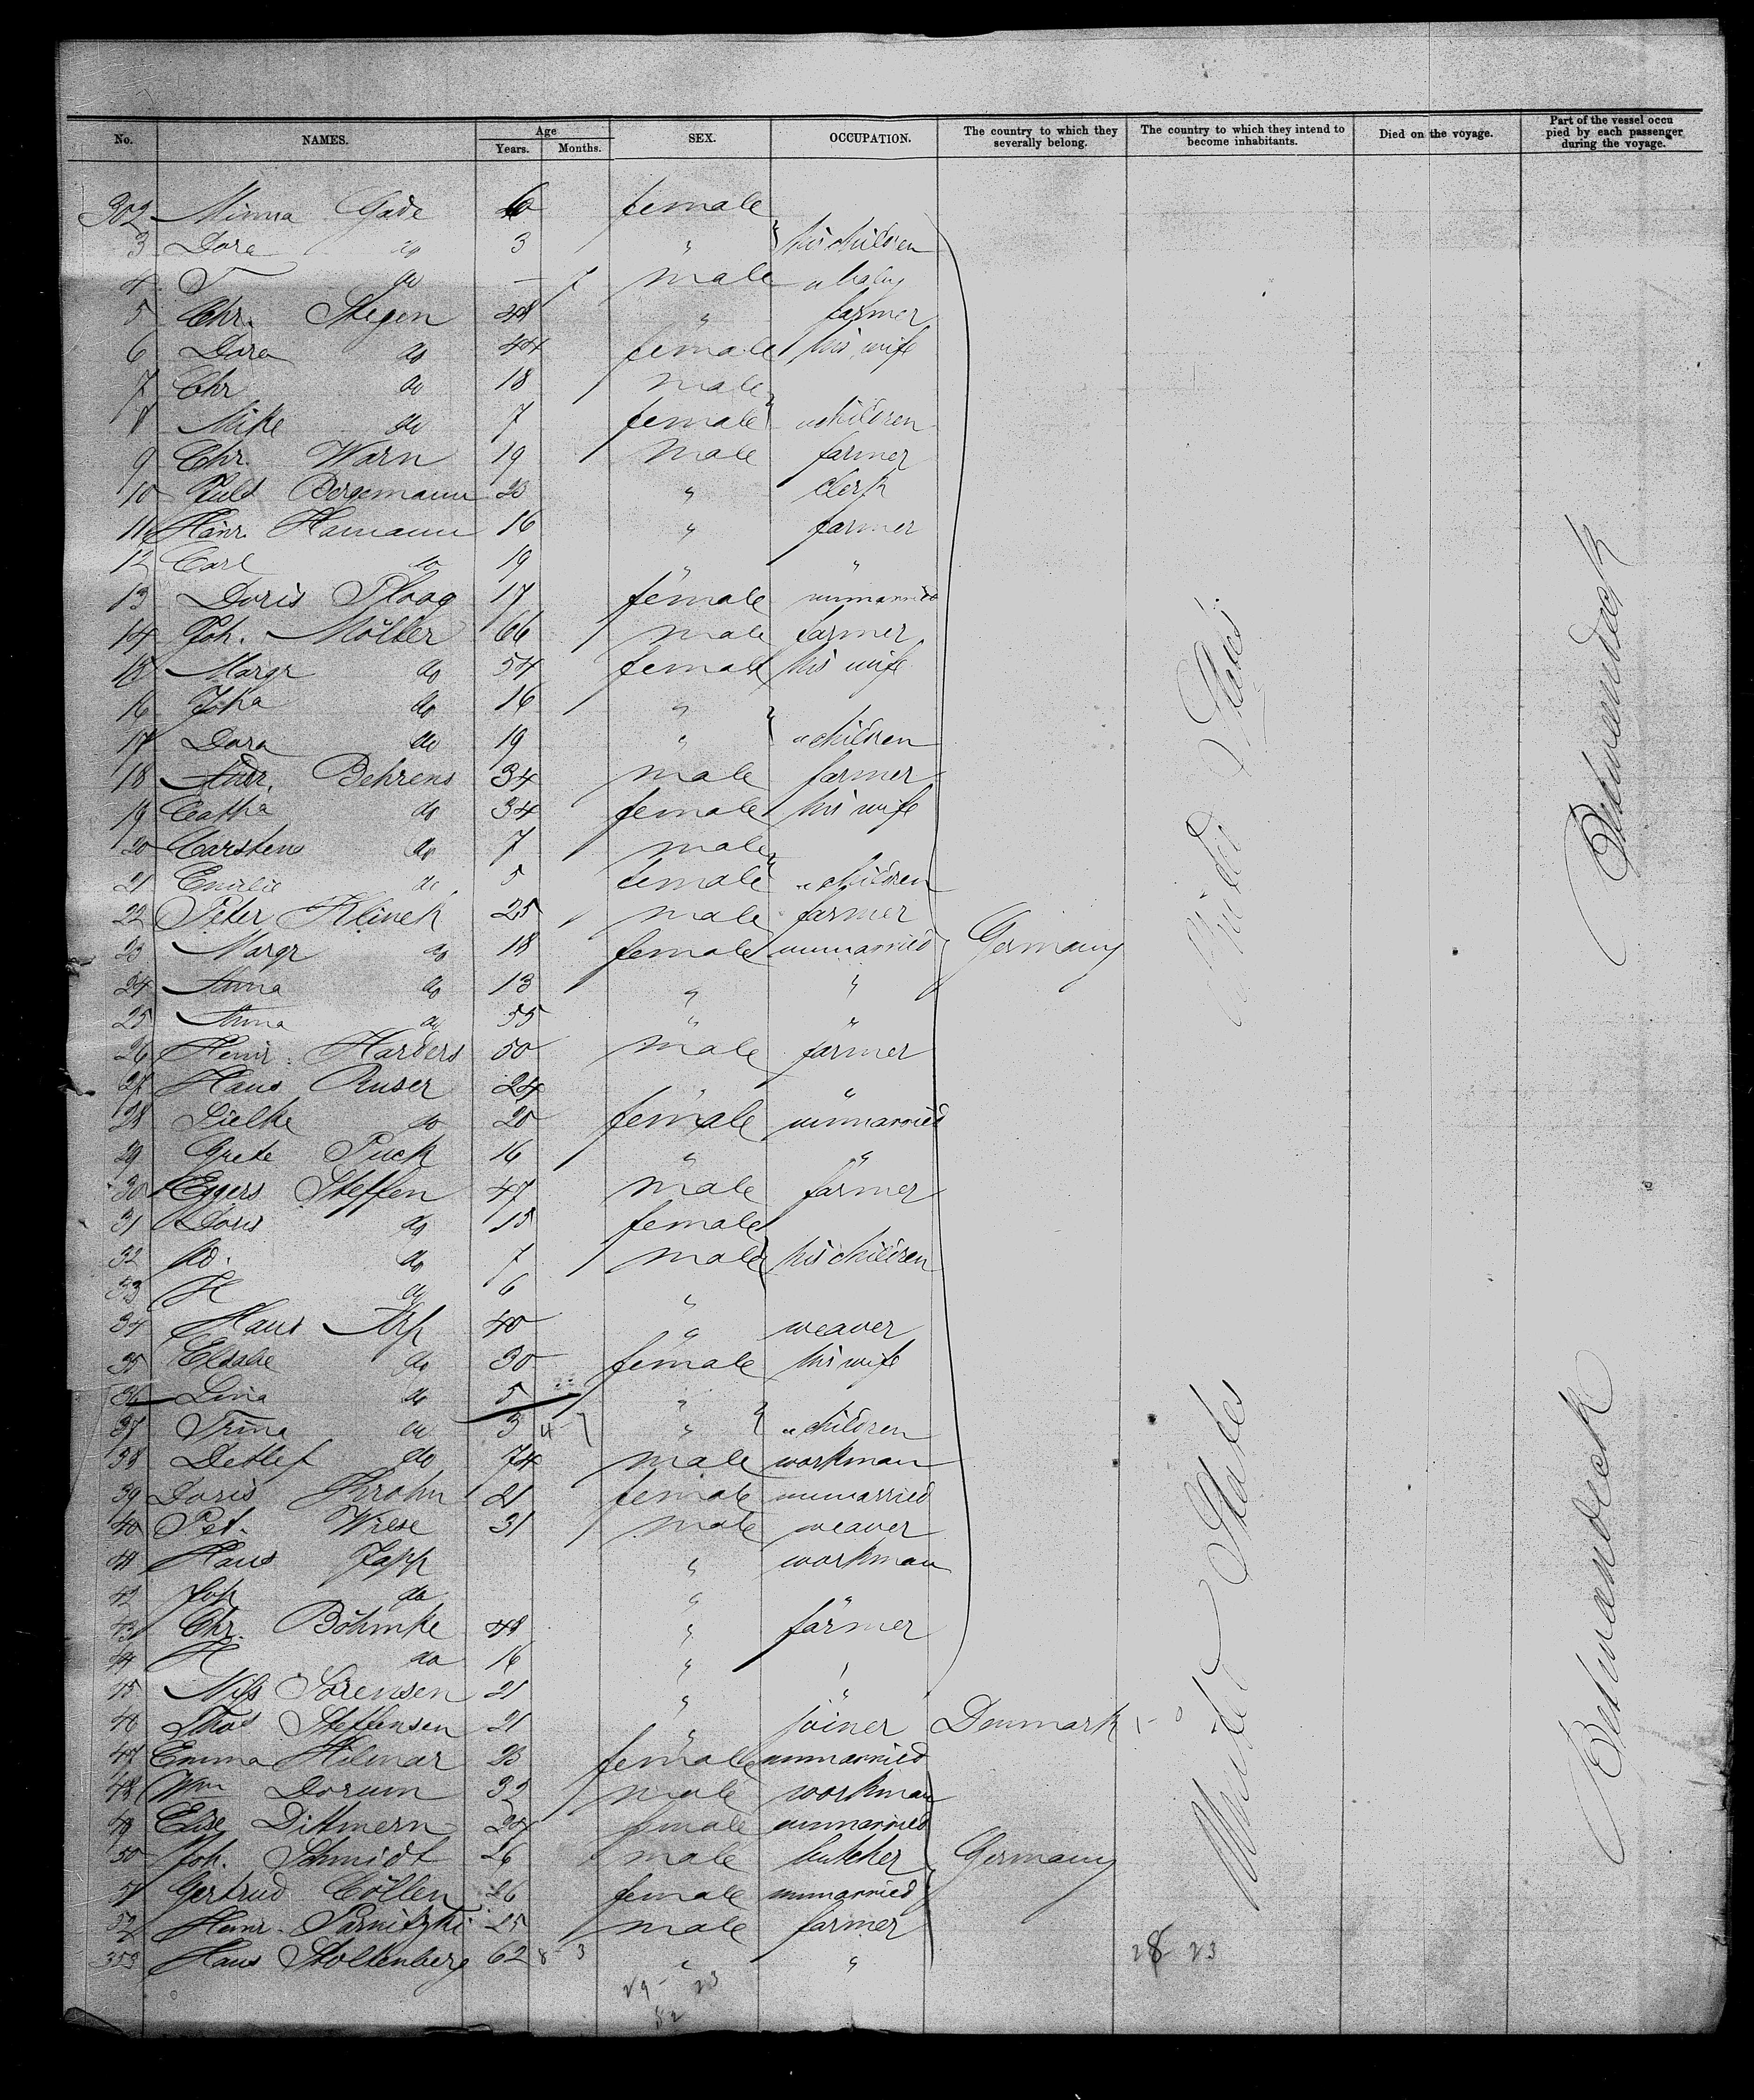 No. NAMES. Age Years. Months. SEX. OCCUPATION. The country to which they severally belong. The country to which they intend to become inhabitants. Died on the voyage. Part of the vessel occu pied by each passenger during the voyage.
302 Minna Gade 6 female
3 Dora do 3 " his children
4 do — 7 male " baby
5 Chr. Stegen 48 " farmer
6 Dora do 44 female his wife
7 Chr do 18 male
8 Mike do 7 female " children
9 Chr. Warn 19 male farmer
10 Bergemann 23 " clerk
11 Heinr. Hamann 16 " farmer
12 Carl do 19 " "
13 Doris Ploog 17 female unmarried
14 Joh. Möller 66 male farmer
15 Margr do 54 female his wife
16 Joha do 16 "
17 Dora do 19 " " children
18 Andr. Behrens 34 male farmer
19 Catha do 34 female his wife
20 Carstens do 7 male
21 Emilie do 5 female " children
22 Peter Klinck 25 male farmer
23 Margr do 18 female unmarried Germany
24 Anna do 13 " "
25 Anna do 55 " "
26 Heinr. Harders 50 male farmer
27 Hans Ruser 24 " "
28 Lielke do 20 female unmarried
29 Grete Puck 16 " "
30 Eggers Steffen 47 male farmer
31 Doris do 15 female
32 Ad. do 7 male his children
33 H do 6 "
34 Hans Arp 40 " weaver
35 Elsabe do 30 female his wife
36 Lina do 5 "
37 Trina do 3 " " children
38 Detlef do 74 male workman
39 Doris Krohn 21 female unmarried
40 Pet. Wiese 31 male weaver
41 Hans Japp " workman
42 Joh do " "
43 Chr. Böhmke 48 " farmer
44 H do 16 " "
45 Nifs Sörensen 21 " "
46 Thos Steffensen 21 " joiner Denmark
47 Emma Hilmar 23 female unmarried
48 Wm Dorum 32 male workman
49 Elise Dittmern 24 female unmarried
50 Joh. Schmidt 26 male butcher Germany
51 Gertrud Cöllen 26 female unmarried
52 Heinr. Parnitzki 25 male farmer
353 Hans Stoltenberg 62 8 3 " "
28 23
29 - 23
52
United States
United States
Betweendeck
Betweendeck